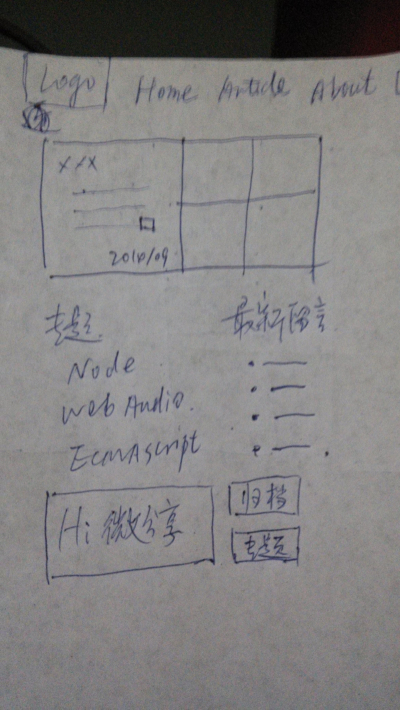 Logo Home Article About
xxx
2014/09
专题 最新留言
Node
Web Audio
EcmAscript
Hi 微分享 归档
专题